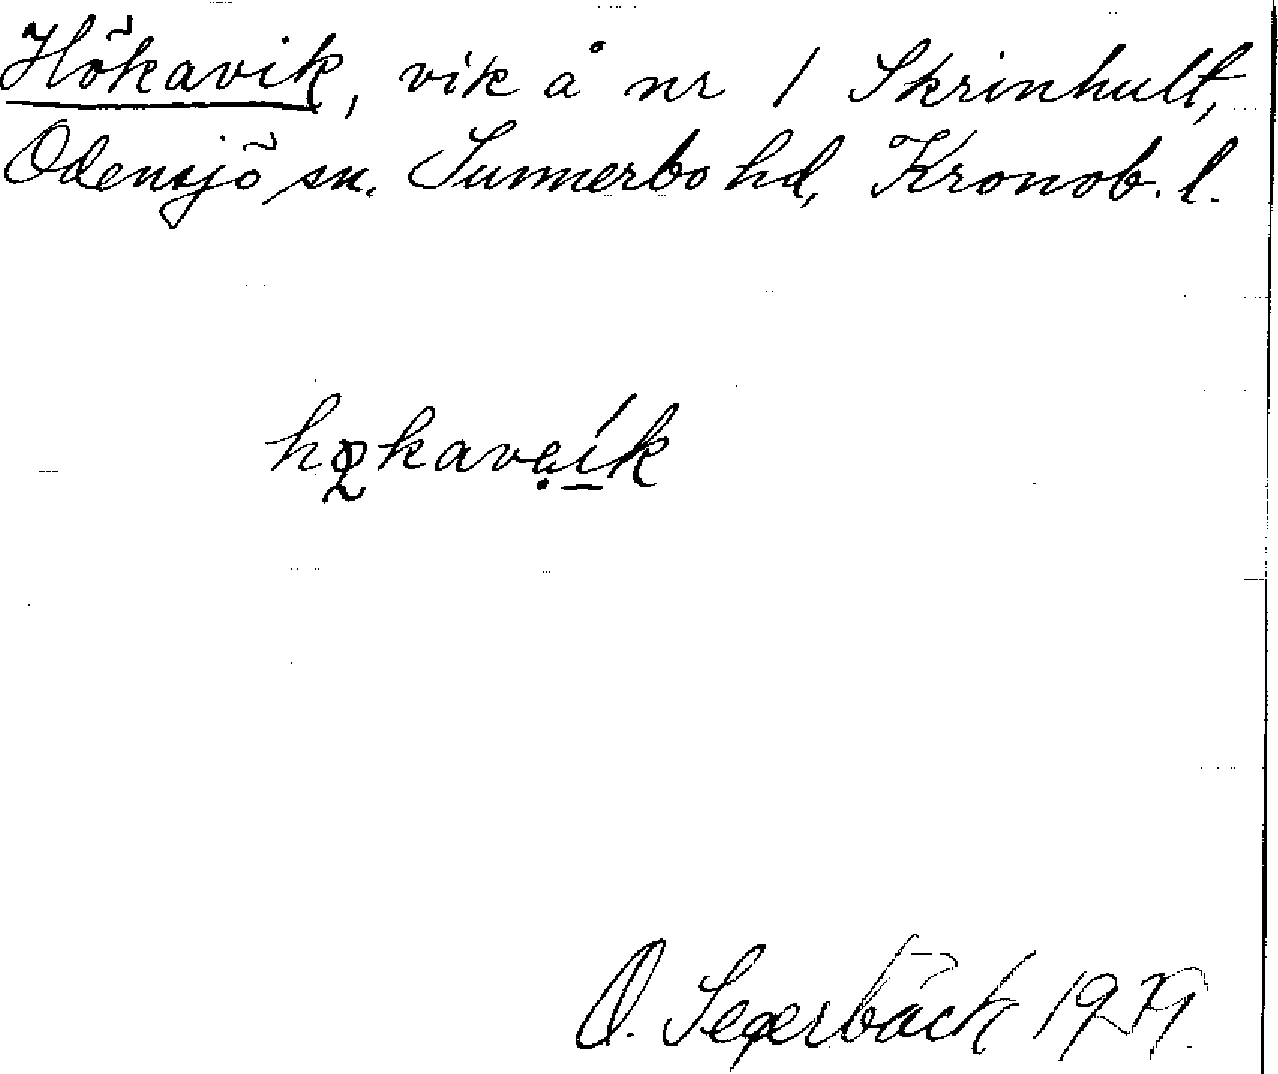 Hökavik, vik å nr 1 Skrinhult,
Odensjö sn. Sunnerbo hd, Kronob. l.
O. Segerbäck 1929.